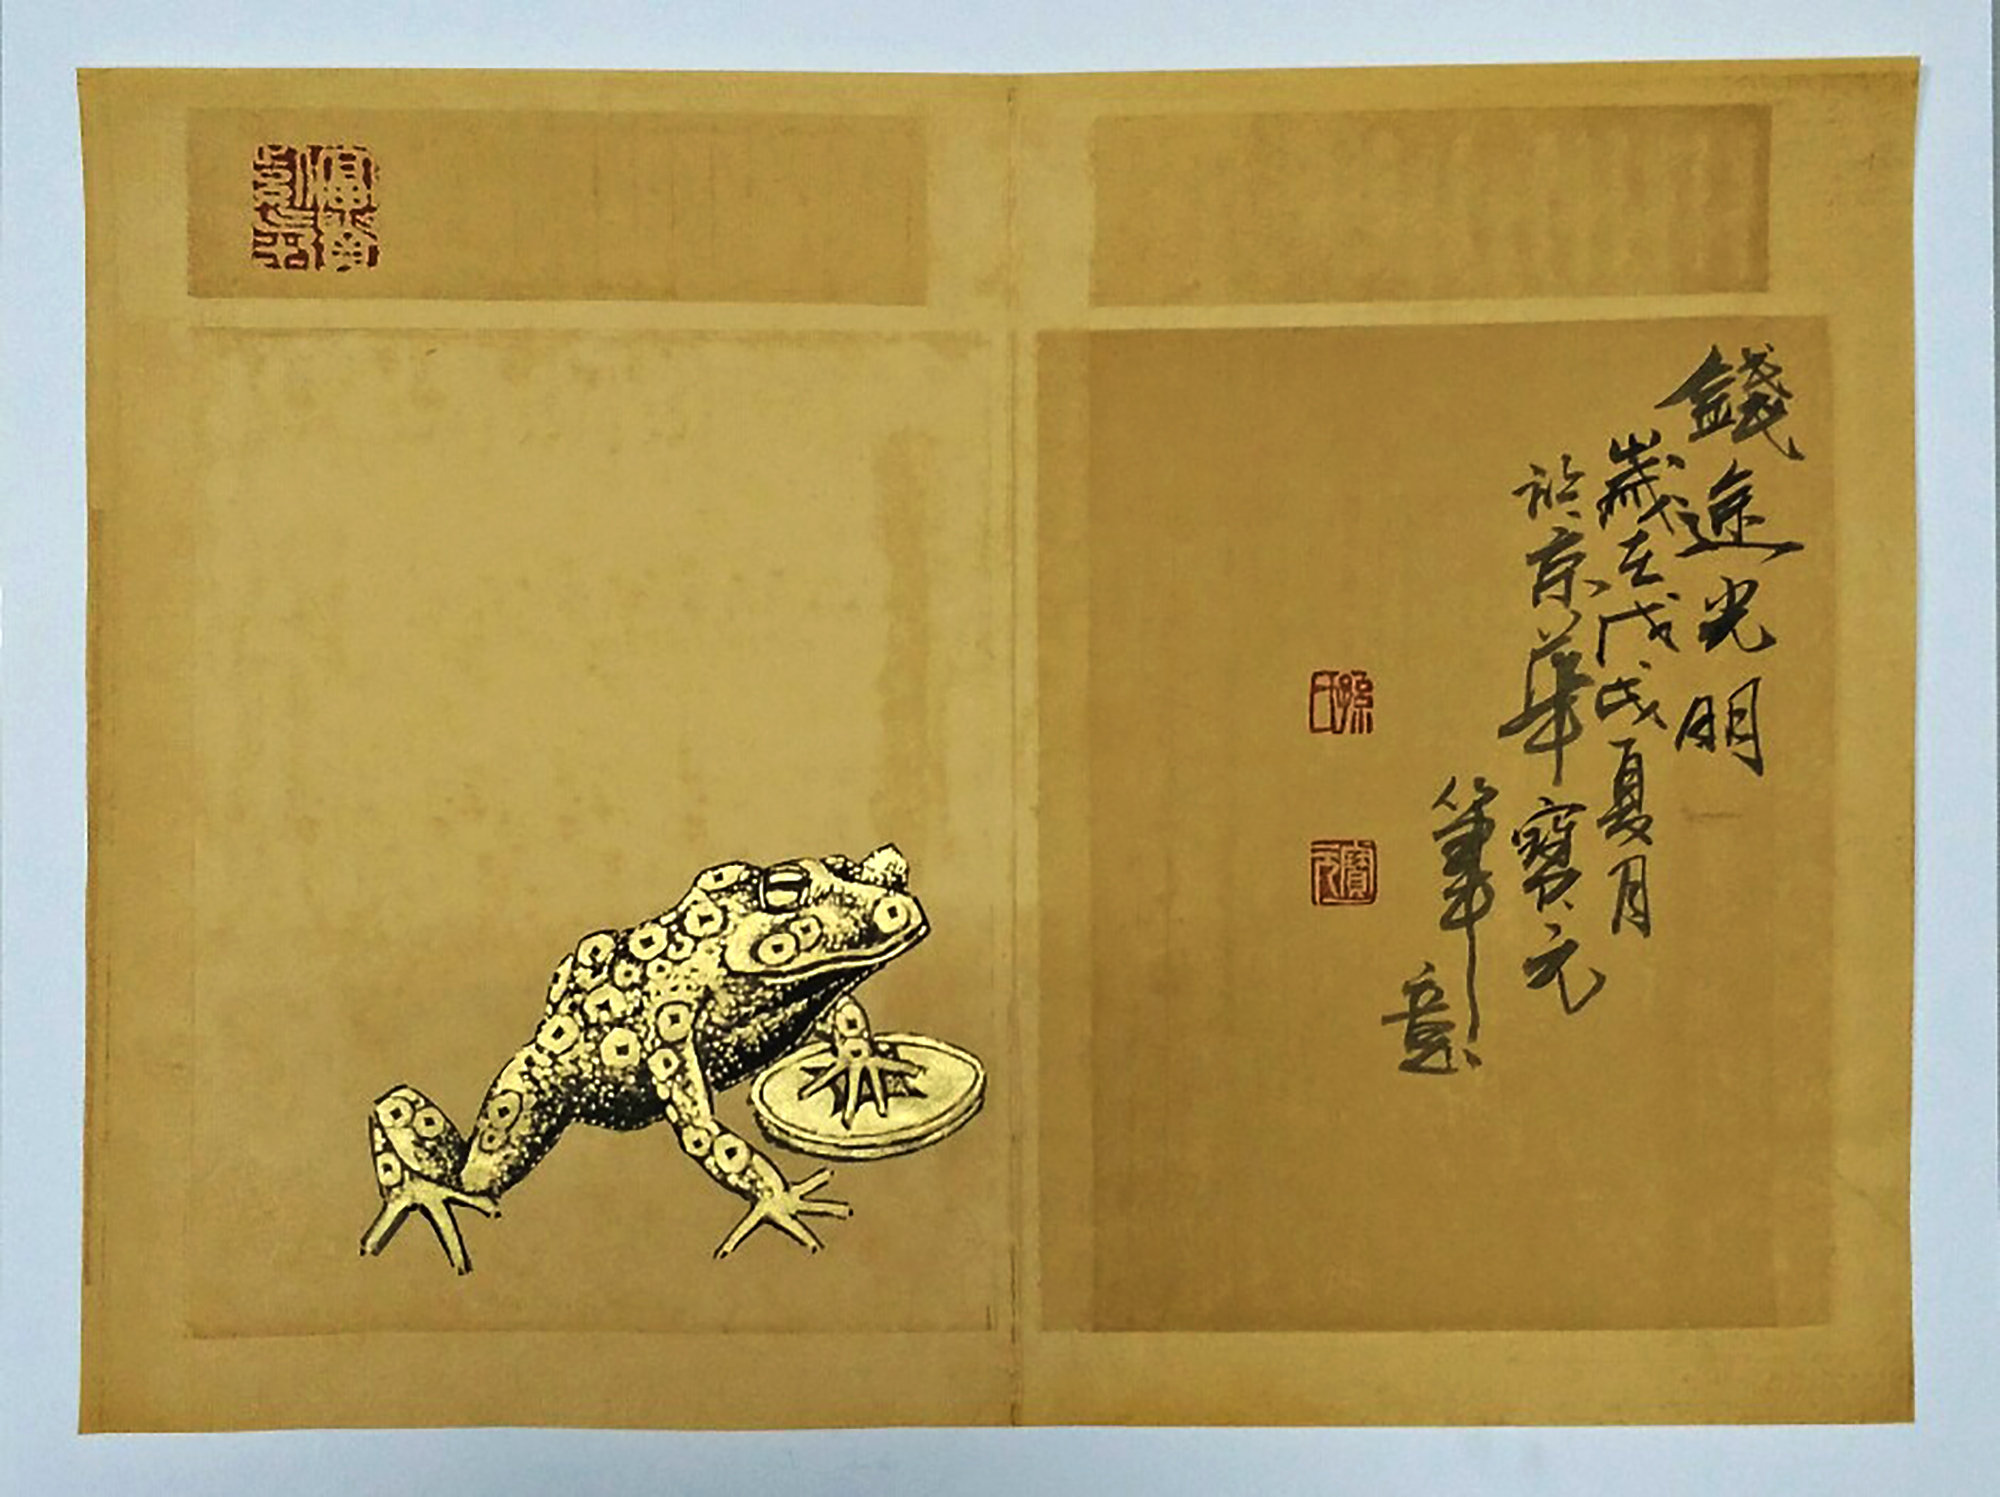 錢途光明
歲在戊戌夏月
於京華寶元
筆意
孫氏
寶元